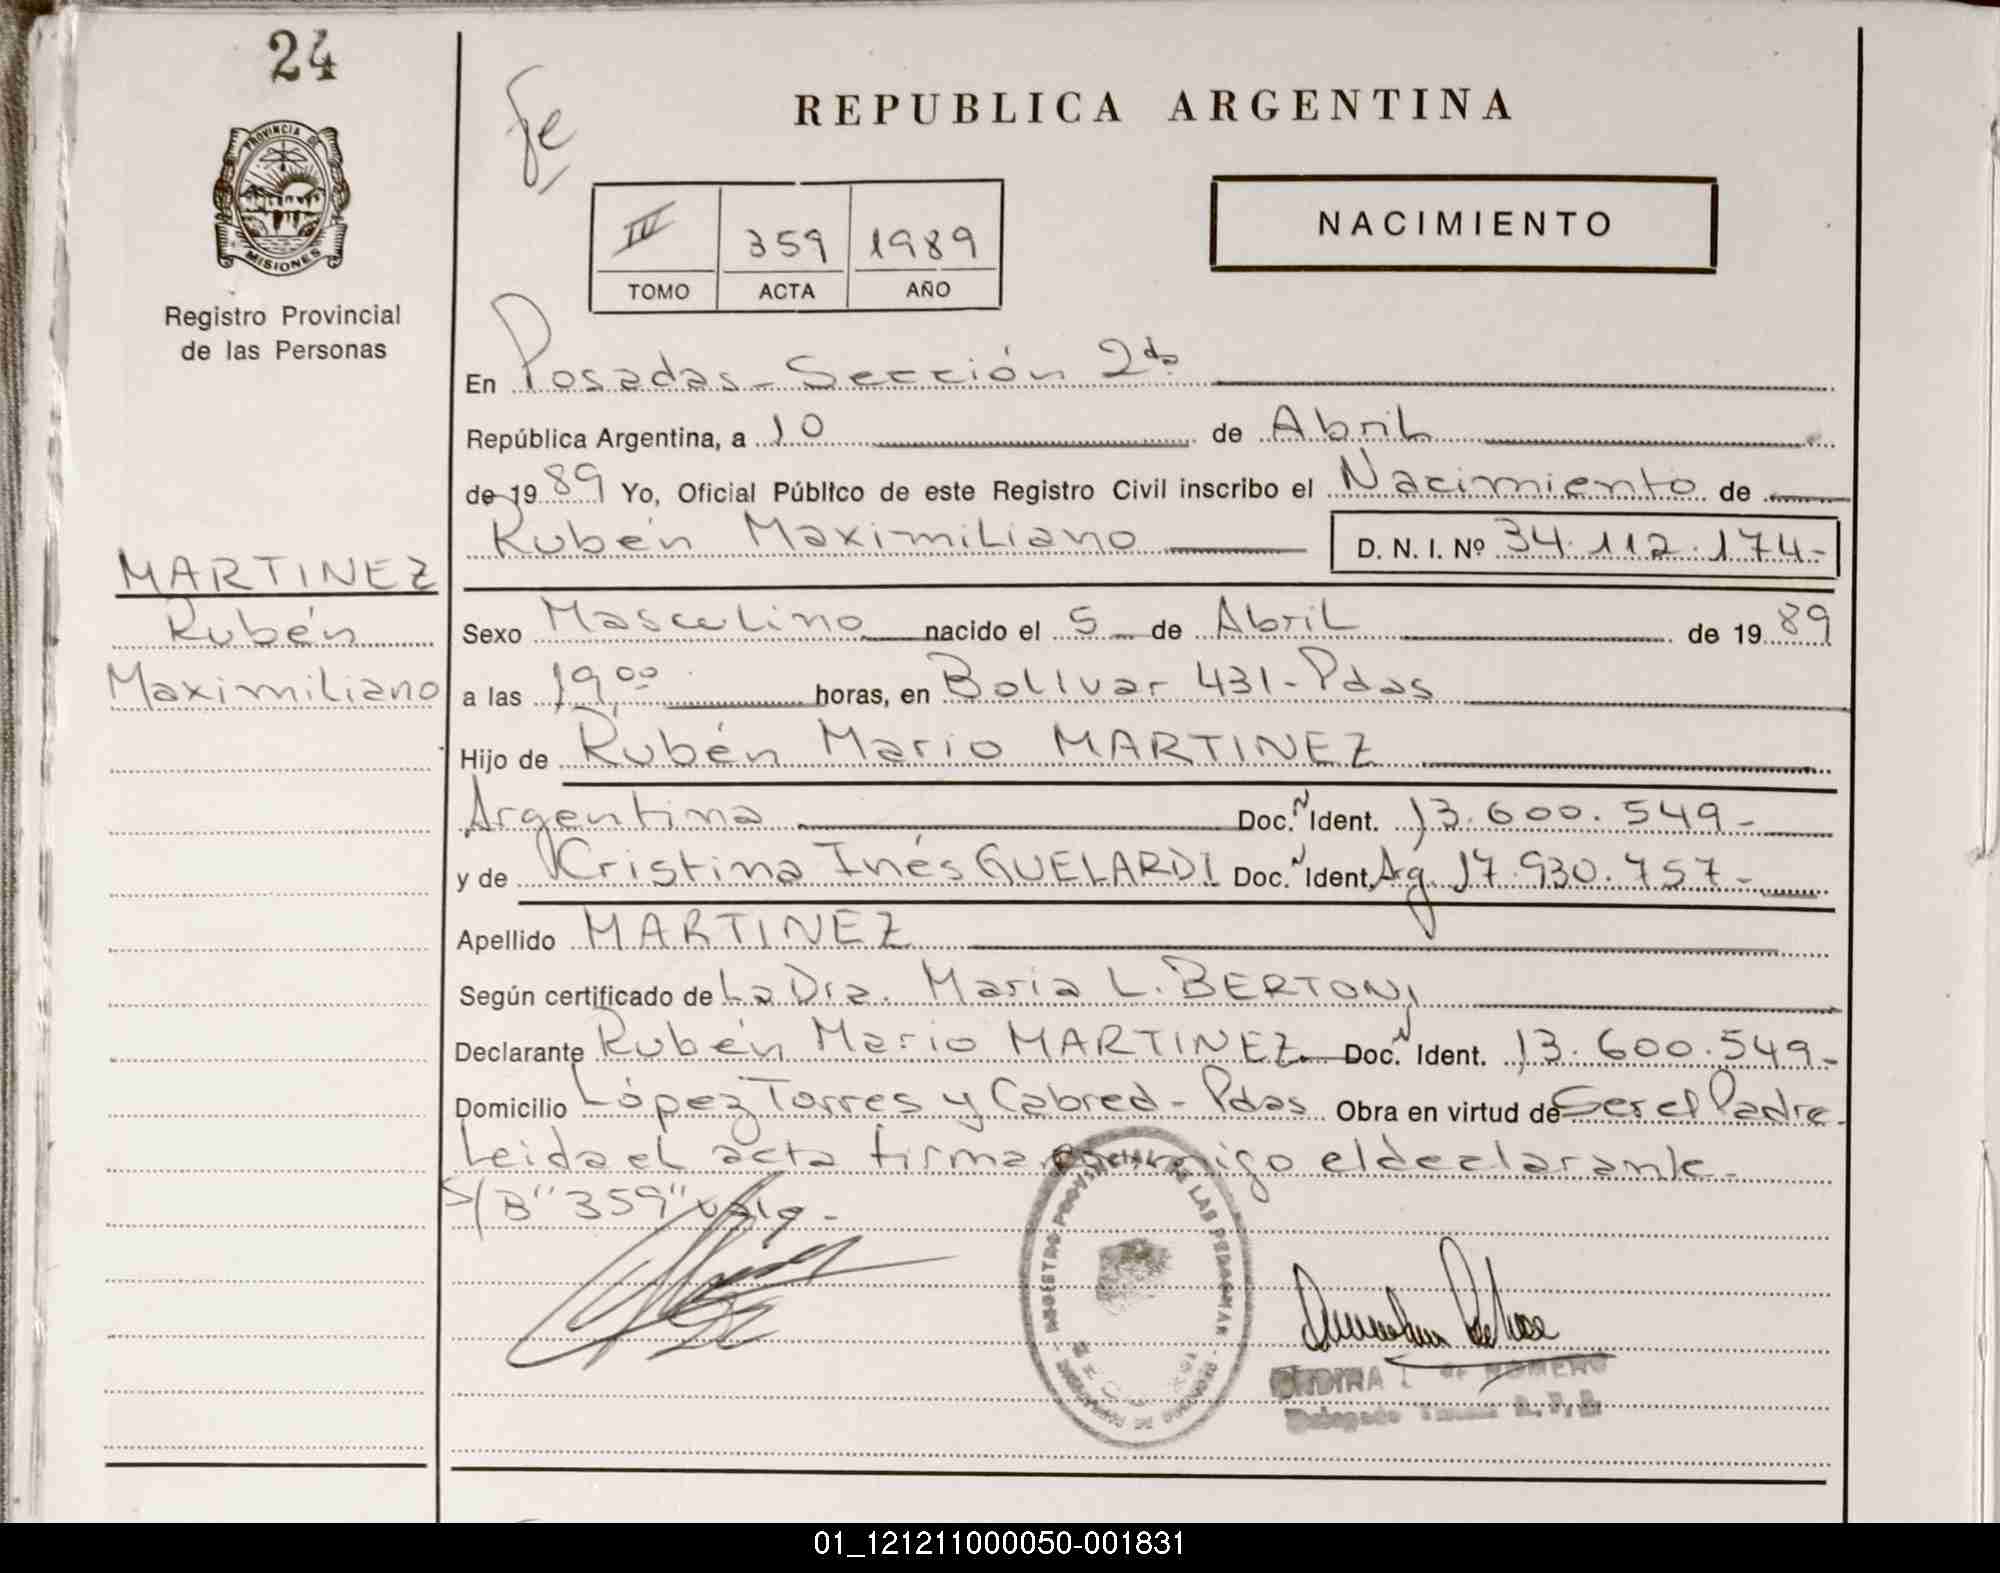 24
PROVINCIA DE
MISIONES
Registro Provincial
de las Personas
MARTINEZ
Rubén
Maximiliano
Fe
REPUBLICA ARGENTINA
IV 359 1989
TOMO ACTA AÑO
NACIMIENTO
En Posadas - Sección 2da
República Argentina, a 10 de Abril
de 1989 Yo, Oficial Público de este Registro Civil inscribo el Nacimiento de
Rubén Maximiliano D. N. I. Nº 34.112.174-
Sexo Masculino nacido el 5 de Abril de 1989
a las 19,00 horas, en Bolivar 431-Pdas
Hijo de Rubén Mario MARTINEZ
Argentina Doc. N Ident. 13.600.549-
y de Cristina Inés GUELARDI Doc. N Ident. Arg. 17.930.757-
Apellido MARTINEZ
Según certificado de La Dra. Maria L. BERTONI
Declarante Rubén Mario MARTINEZ Doc. N Ident. 13.600.549-
Domicilio López Torres y Cabred - Pdas Obra en virtud de Ser el Padre.
Leida el acta firma conmigo el declarante.
S/B "359" vale-
REGISTRO PROVINCIAL DE LAS PERSONAS
ROMERO
Delegado
01_121211000050-001831